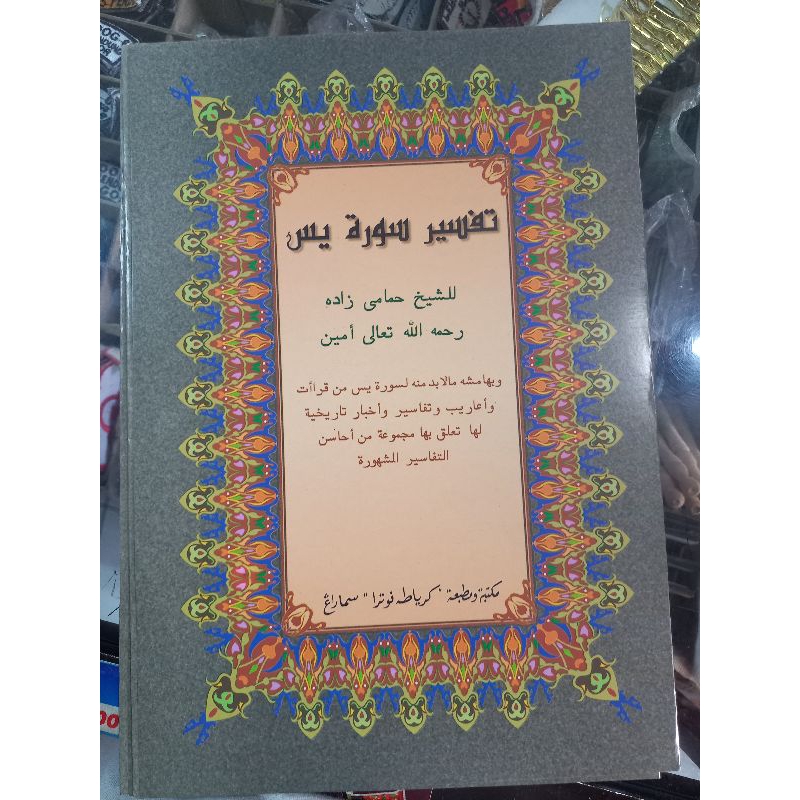 تفسير سورة يس
للشيخ حمامى زاده
رحمه الله تعالى أمين
وبهامشه مالابد منه لسورة يس من قراأت
وأعاريب وتفاسير وأخبار تاريخية
لها تعلق بها مجموعة من أحاسن
التفاسير المشهورة
مكتبة ومطبعة "كرياطه فوترا" سماراڠ